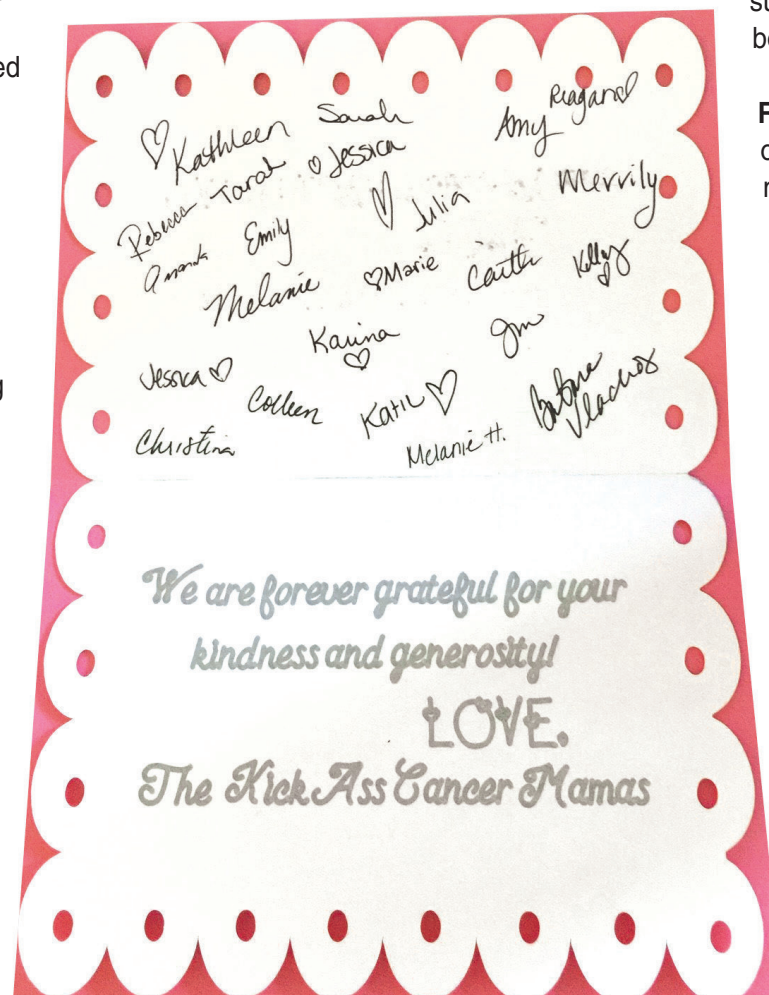 ed
su
be
F
c
r
g
Kathleen
Sarah
Amy
Reagan
Rebecca
Tarah
Jessica
Julia
Merrily
Amanda
Emily
Melanie
Marie
Caitlin
Kelley
Karina
Jm
Jessica
Colleen
Katie
Barbara
Vlachos
Christina
Melanie H.
We are forever grateful for your
kindness and generosity!
LOVE,
The Kick Ass Cancer Mamas